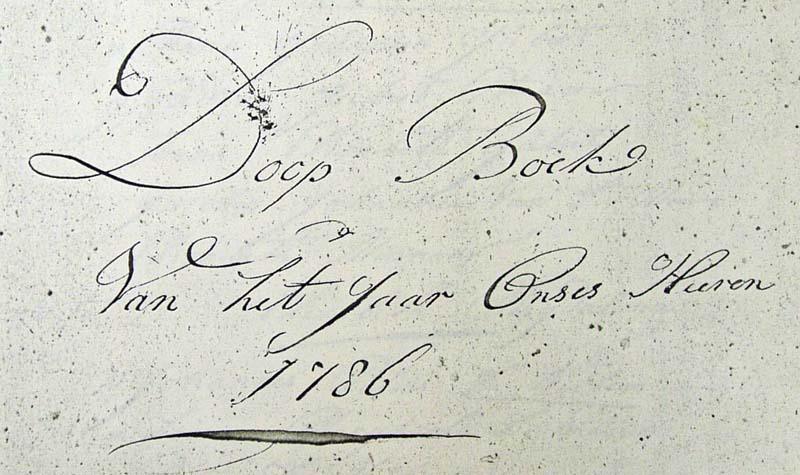 Doop Boek
Van het Jaar Onses Heeren
1786